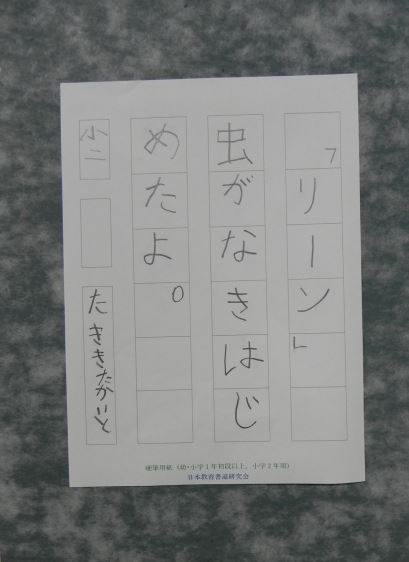 「リーン」
虫がなきはじ
めたよ。
小二
たききたかいと
硬筆用紙（幼・小学1年初段以上、小学2年用）
日本教育書道研究会